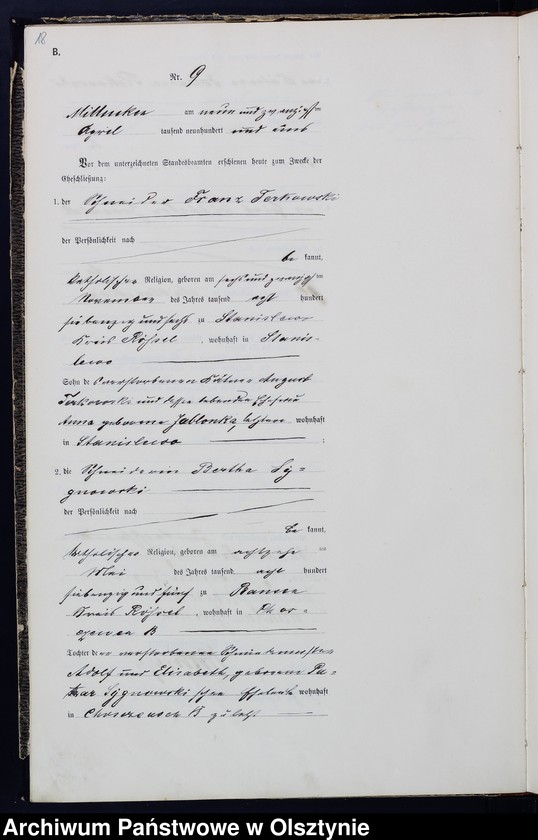 18
B.
Nr. 9
am neun und zwanzigsten
April tausend neunhundert und eins
Vor dem unterzeichneten Standesbeamten erschienen heute zum Zwecke der
Eheschließung:
1. der Schneider Franz Terkowski
der Persönlichkeit nach
be kannt,
katholischer Religion, geboren am sechs und zwanzigsten
November des Jahres tausend acht hundert
siebenzig und sechs zu Stanislewo
Kreis Rößel, wohnhaft in Stanis-
lewo
Sohn des verstorbenen Käthners August
Terkowski und dessen lebenden Ehefrau
Anna geborene Jablonka, letztere wohnhaft
in Stanislewo ;
2. die Schneiderin Bertha Sy-
gnowski
der Persönlichkeit nach
be kannt,
katholischer Religion, geboren am achtzehn ten
Mai des Jahres tausend acht hundert
siebenzig und fünf zu
Kreis Rößel, wohnhaft in Chos-
zewen B
Tochter der verstorbenen
Adolf und Elisabeth, geborene
Sygnowski'schen Eheleute wohnhaft
in B zuletzt.
Archiwum Państwowe w Olsztynie